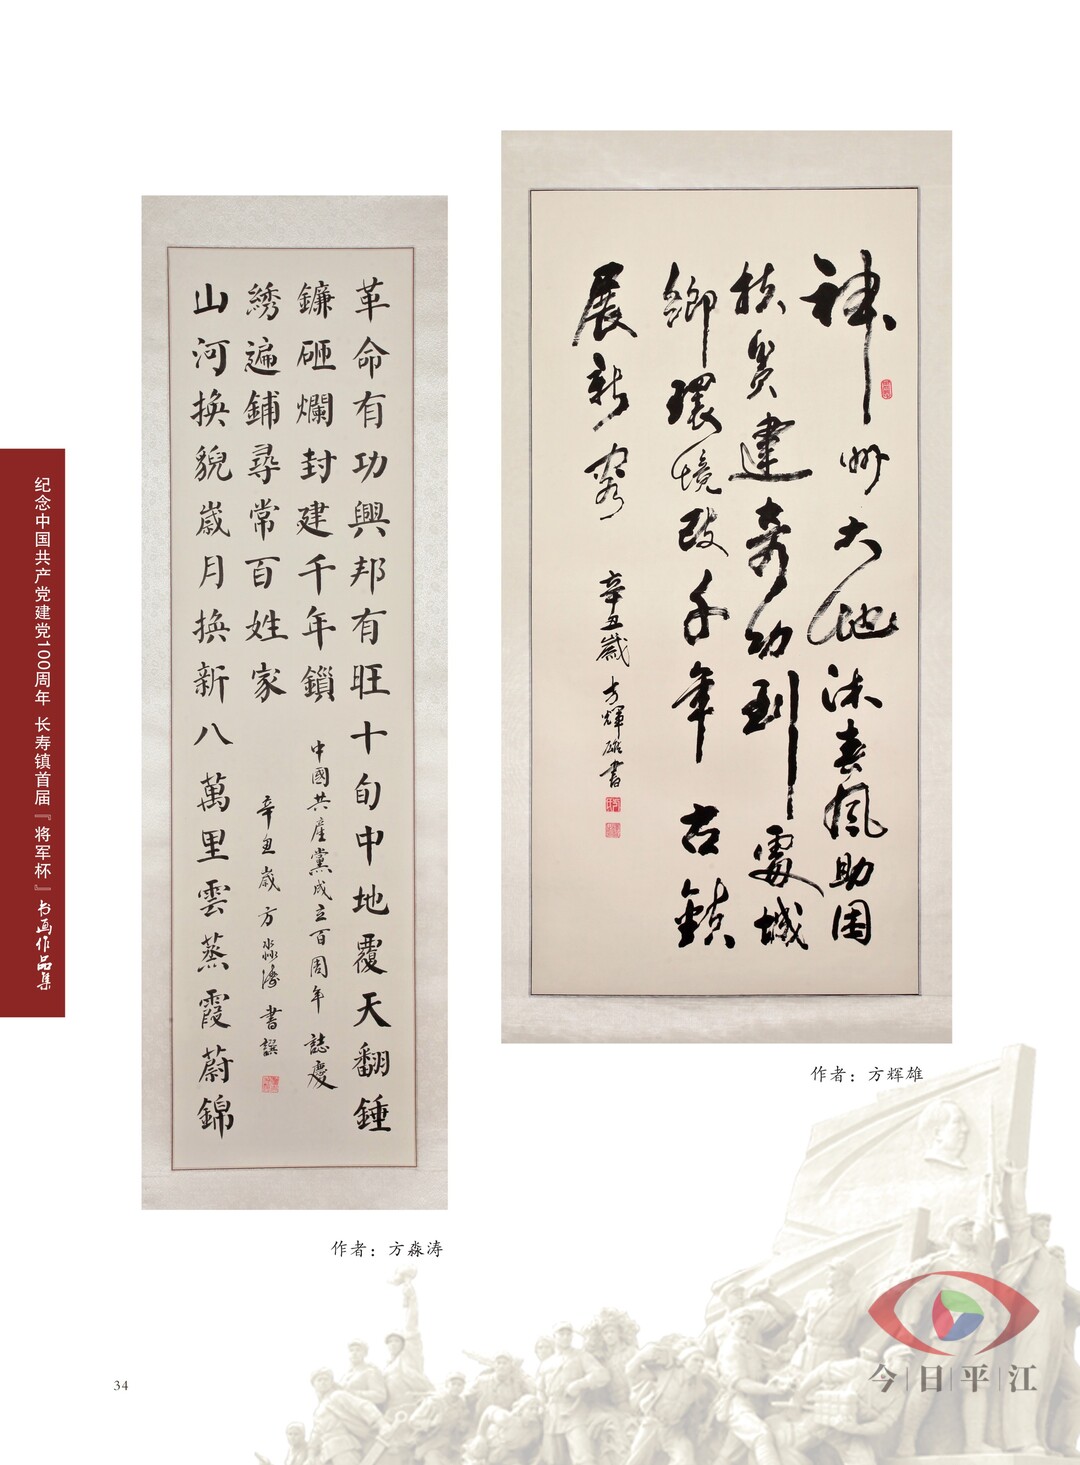 纪念中国共产党建党100周年 长寿镇首届『将军杯』书画作品集
革命有功興邦有旺十旬中地覆天翻錘
鐮砸爛封建千年鎖
中國共產黨成立百周年誌慶
山河換貌歲月換新八萬里雲蒸霞蔚錦
綉遍鋪尋常百姓家
辛丑歲 方淼濤 書譔
作者：方淼涛
神州大地沐春風助困
扶貧建奇功到處城
鄉環境改千年古鎮
展新容
辛丑歲 方輝雄書
作者：方辉雄
34
今日平江